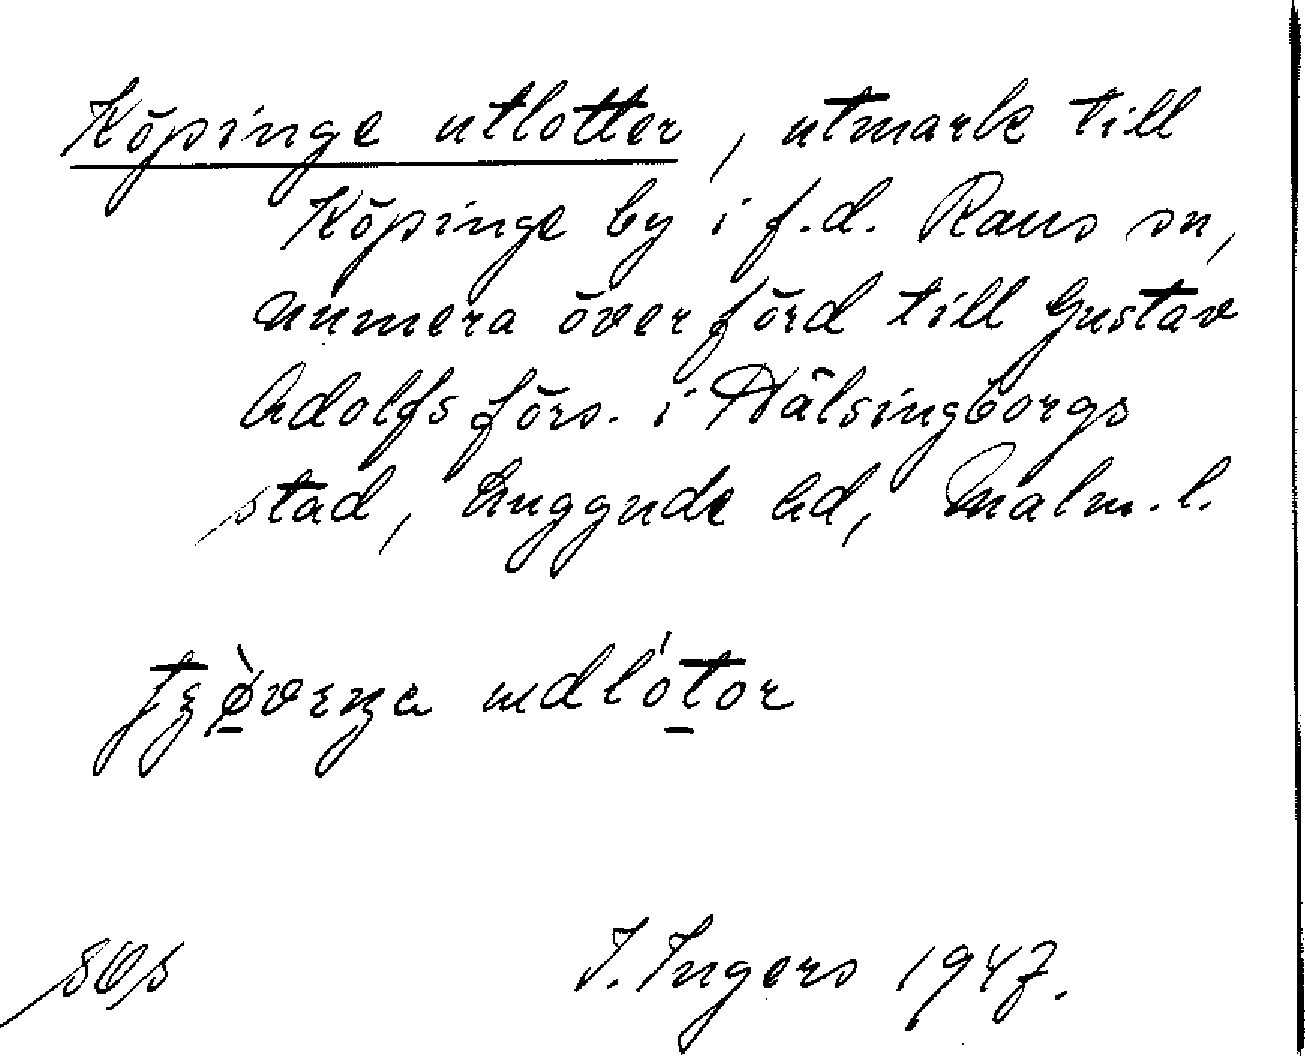 Köpinge utlotter, utmark till
Köpinge by i f.d. Raus sn,
numera överförd till Gustav
Adolfs förs. i Hälsingborgs
stad, Luggude hd, Malm. l.
I. Ingers 1947.